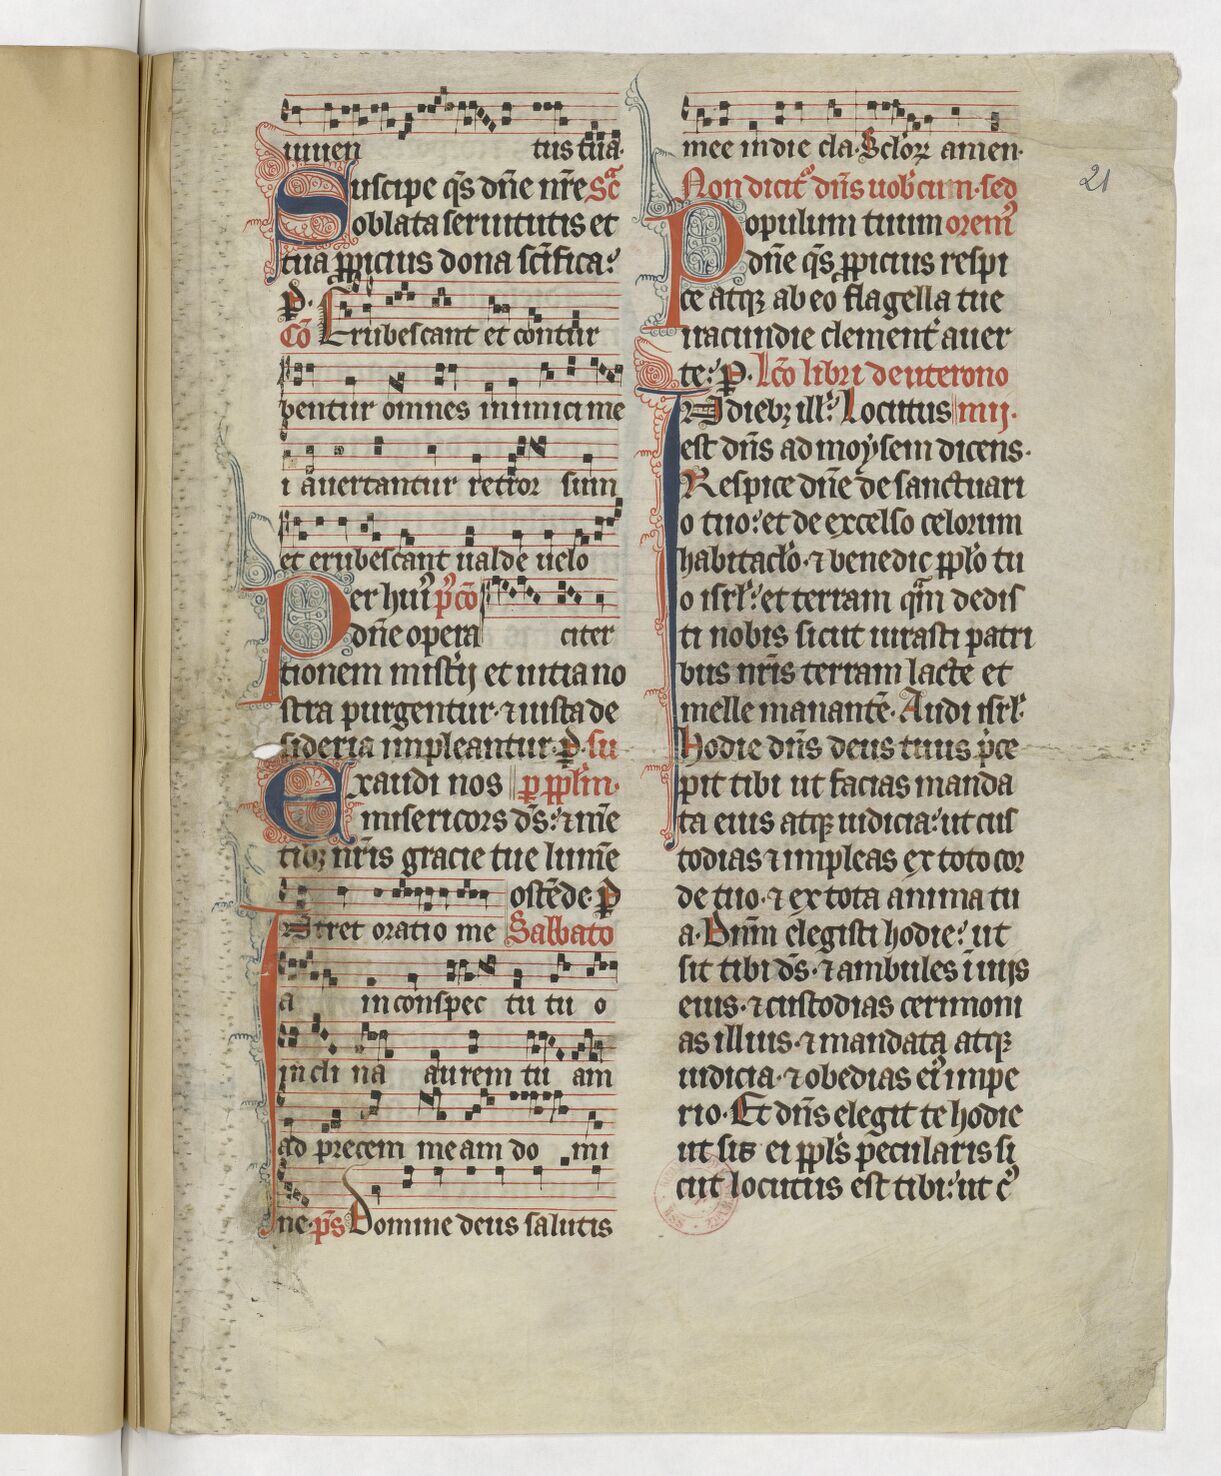 iuuen tus tua.
Suscipe qs dñe nr̃e Sc̃
oblata seruitutis et
tua ꝓpicius dona sc̃ifica.
P.
Cõ Erubescant et contur
bentur omnes inimici me
i auertantur retror sum
et erubescant ualde uelo
Per huiꝰ p̾cõ
dñe opera citer
tionem mist̾ij et uitia no
stra purgentur. ⁊ iusta de
sideria impleantur. P. su
Exaudi nos p̱ ppl̾m.
misericors dš. ⁊ mẽ
tibꝫ nr̃is gracie tue lumẽ
ostẽde. P
Intret oratio me Sabbato
a in conspec tu tu o
incli na aurem tu am
ad precem meam do mi
ne. p̃s Domine deus salutis
mee in die cla. Scl̾oꝝ amen.
Non dicit̾ dñs uob̾cum. sed
Populum tuum orem̾ꝰ
dñe qs ꝓpicius respi
ce atqꝫ ab eo flagella tue
iracundie clement̾ auer
te. P. Lc̃o libri deuterono
In diebꝫ ill̾. Locutus mij.
est dñs ad moysem dicens.
Respice dñe de sanctuari
o tuo. et de excelso celorum
habitacl̾o. ⁊ benedic ppl̾o tu
o isrl̾. et terram qᵃm dedis
ti nobis sicut iurasti patri
bus nr̃is terram lacte et
melle manantẽ. Audi isrl̾.
Hodie dñs deus tuus p̾ce
pit tibi ut facias manda
ta eius atqꝫ iudicia. ut cus
todias ⁊ impleas ex toto cor
de tuo. ⁊ ex tota anima tu
a. Dñm elegisti hodie. ut
sit tibi dš. ⁊ ambules ĩ uijs
eius. ⁊ custodias cerimoni
as illius. ⁊ mandata atqꝫ
iudicia. ⁊ obedias eiꝰ impe
rio. Et dñs elegit te hodie
ut sis ei ppl̾s peculiaris si
cut locutus est tibi. ut c̾ꝰ
21